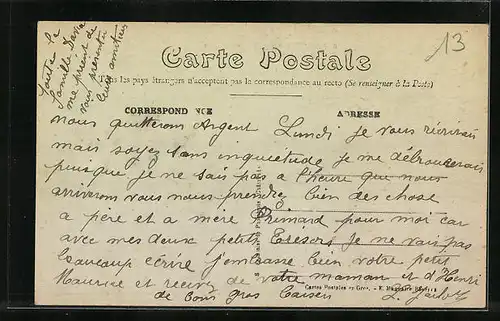 Toute la
famille Dava
me prient de
vous présenter
leurs amitiés
13
Carte Postale
Tous les pays étrangers n'acceptent pas la correspondance au recto (Se renseigner à la Poste)
CORRESPONDANCE
ADRESSE
nous quitterons Argent Lundi je vous récrirais
mais soyez sans inquiétude je me débrouerais
puisque je ne sais pas a l'heure que nous
arriverons vous nous prendrez bien des chose
a père et a mère Primard pour moi car
avec mes deux petits Trésors je ne vais pas
beaucoup écrire j'embrasse bien votre petit
Maurice et recevez de votre maman et d'Henri
de bons gros baisers
Cartes Postales en Gros.